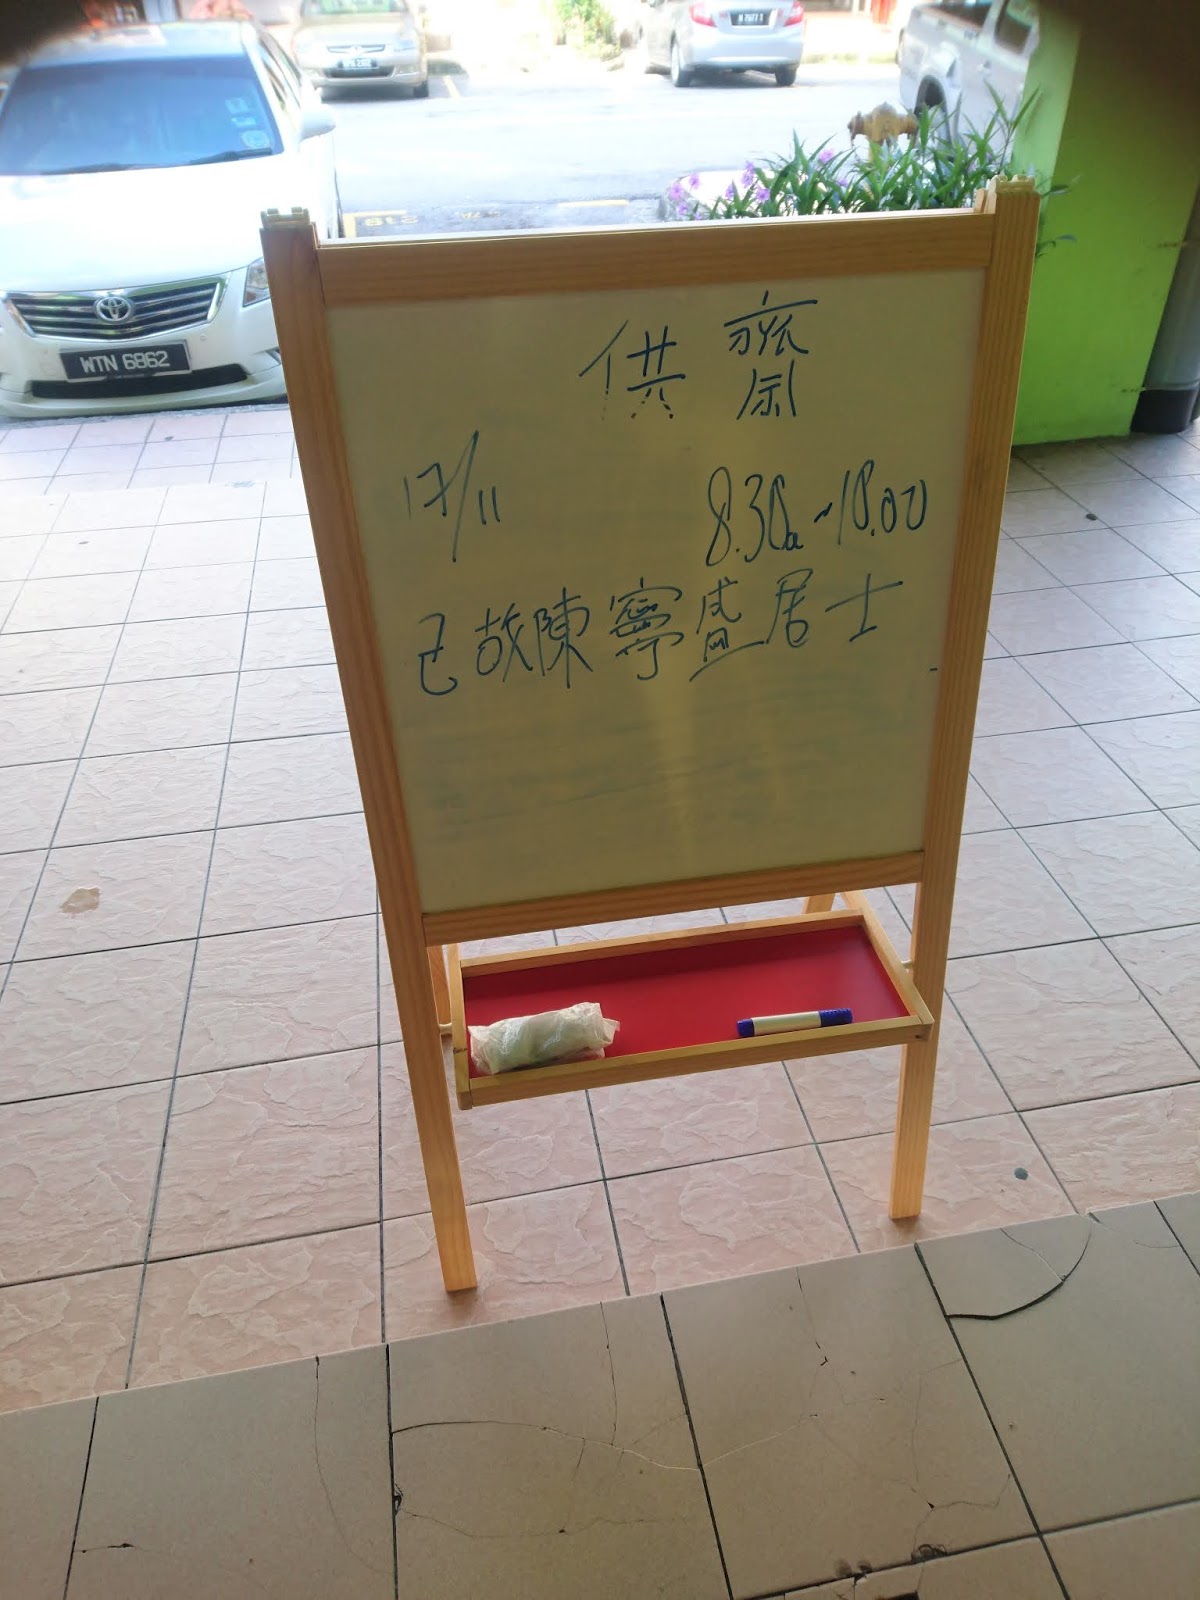 供齋
17/11 8.30a~18.00
已故陳寧盛居士
WTN 6862